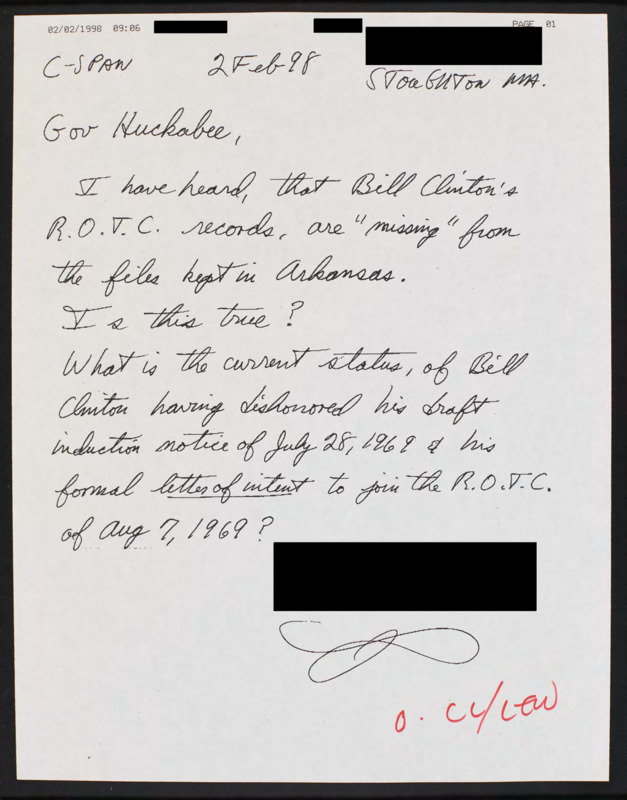 02/02/1998 09:06 PAGE 01
C-SPAN 2 Feb 98
STOUGHTON MA.
Gov Huckabee,
I have heard, that Bill Clinton's
R.O.T.C. records, are "missing" from
the files kept in Arkansas.
Is this true?
What is the current status, of Bill
Clinton having dishonored his draft
induction notice of July 28, 1969 & his
formal letter of intent to join the R.O.T.C.
of Aug 7, 1969?
O. CL/LEW